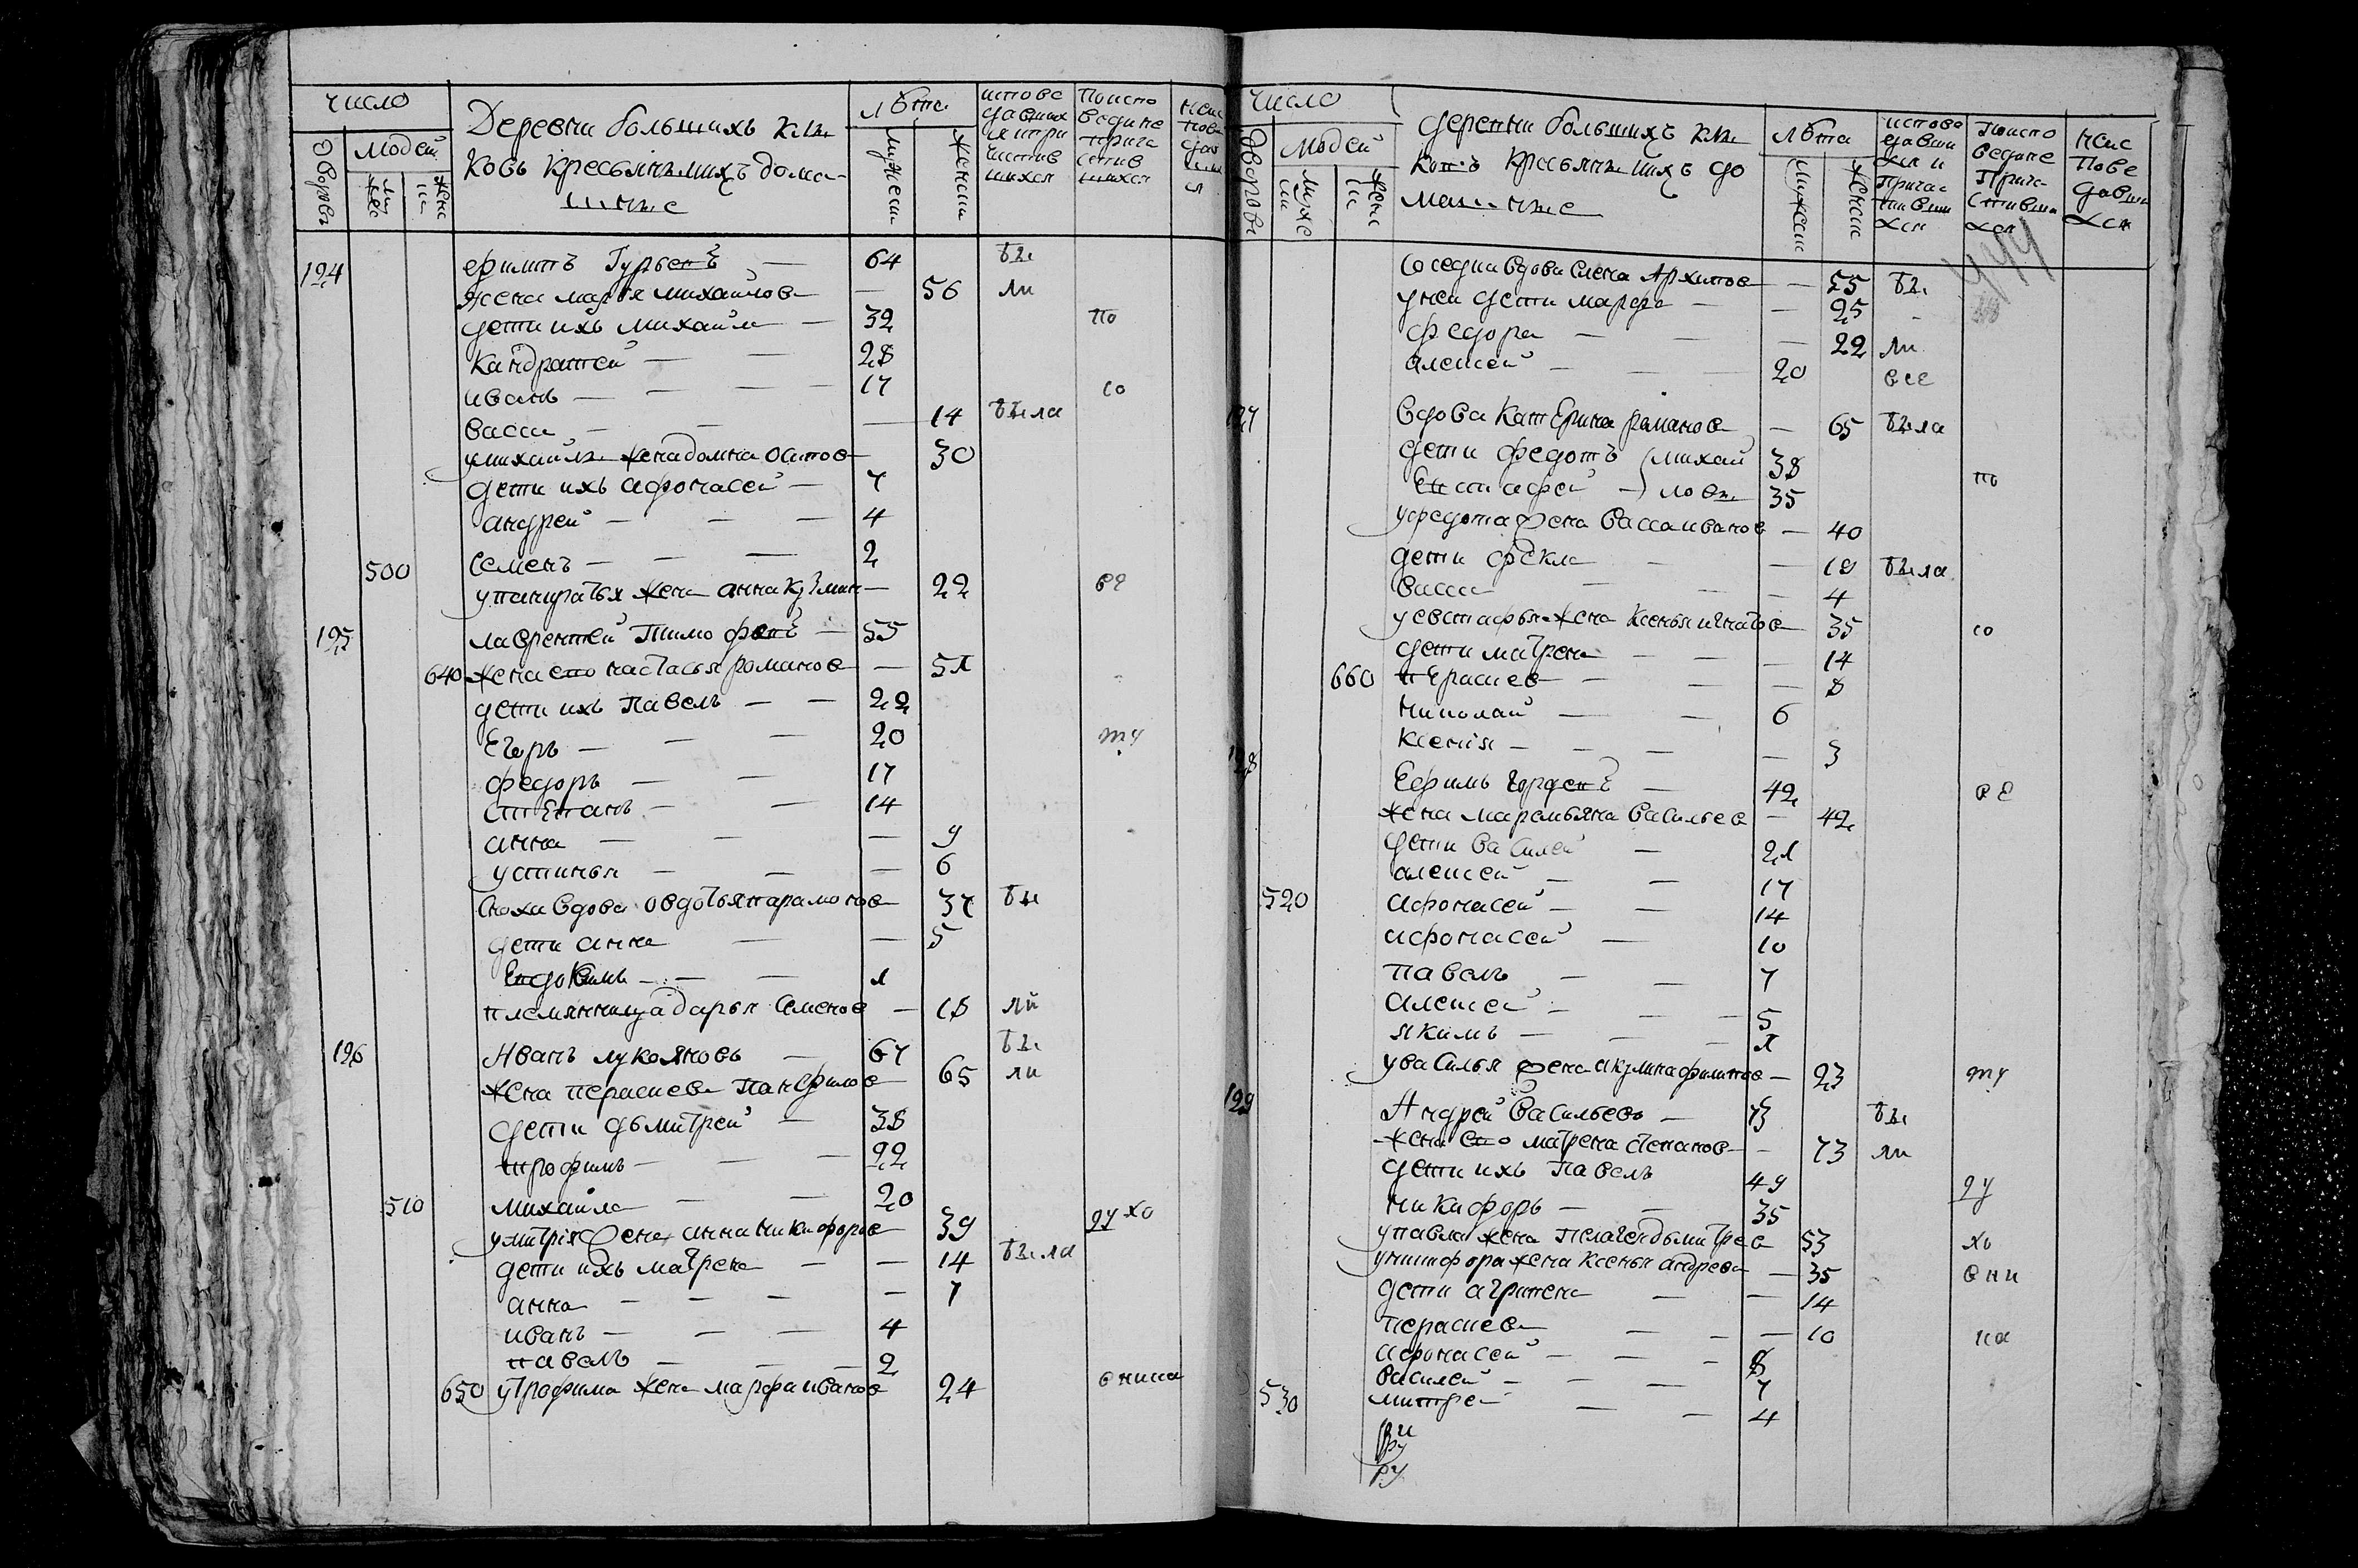 число
Деревни большихъ кли
ковь кресьянъ ихъ дома
шние
лѣта
дворовъ
людей
мужес
женс
мужеска
женска
испове
давших
ся и при
чистив
шихся
Поиспо
ведине
прича
стив
шихся
194 ефимъ Гурьевъ — 64 бы
жена марья михайлов — 56 ли
дети ихъ михайла — 32 по
кандратей — 28
иванъ — 17 со
васса — 14 была
у михайлы жена домна осипов 30
дети ихъ афонасей — 7
андрей — 4
500 семенъ — 2
жена анна кузмин — 22 ве
195 лаврентей Тимофѣевъ — 55
640 жена ево настасья романов — 51
дети ихъ Павелъ — 22
Егоръ — 20 ту
федоръ — 17
степанъ — 14
анна — 9
устинья — 6
сноха вдова овдотья парамонов 37 бы
дети анна — 5
Евдокимъ — 1
племянница дарья семенов — 18 ли
196 Иванъ лукояновъ — 67 бы
жена парасковья Панфилов 65 ли
дети дьмитрей — 38
трофимъ — 22
510 михайла — 20
у митрия жена анна никифоров 39 духо
дети ихъ матрена — 14 была
анна — 7
иванъ — 4
павелъ — 2
650 у трофима жена марфа иванов 24 вника
число
Деревни большихъ кли
ковъ кресьянъ ихъ до
машние
лѣта
дворовъ
людей
мужс
женс
мужеска
женска
испове
давши
хся и
причас
тивши
хся
поиспо
ведине
прича
стивши
хся
неис
пове
давши
хся
соседка вдова елена Архипов — 55 бы
у неи дети марфа — 25
федора — 22 ли
алексей — 20 все
197 вдова катерина романов — 65 была
дети федотъ (михай 38 по
Евстафей —) ловы 35
у федота жена васса иванов — 40
дети фекла — 10 была
васса — 4
у евстафья жена ксенья игнатов 35 со
дети матрена — 14
660 парасков — 8
николай — 6
ксения — 3
198 Ефимъ гордеевъ — 42 ве
жена маремьяна васильев — 42
дети василей — 21
алексей — 17
520 афонасей — 14
афонасей — 10
павелъ — 7
алексей — 5
якимъ — 1
у василья жена акулина филипов — 23 ту
199 Андрей васильевъ — 73 бы
жена ево матрена степанов — 73 ли
дети ихъ Павелъ 49 ду
никифоръ — 35
у павла жена пелагея дьмитрев 53 хо
у никифора жена ксенья андреев — 35 вни
дети агрипена — 14
парасков — 10 ка
афонасей — 8
василей — 7
530 митрей — 4